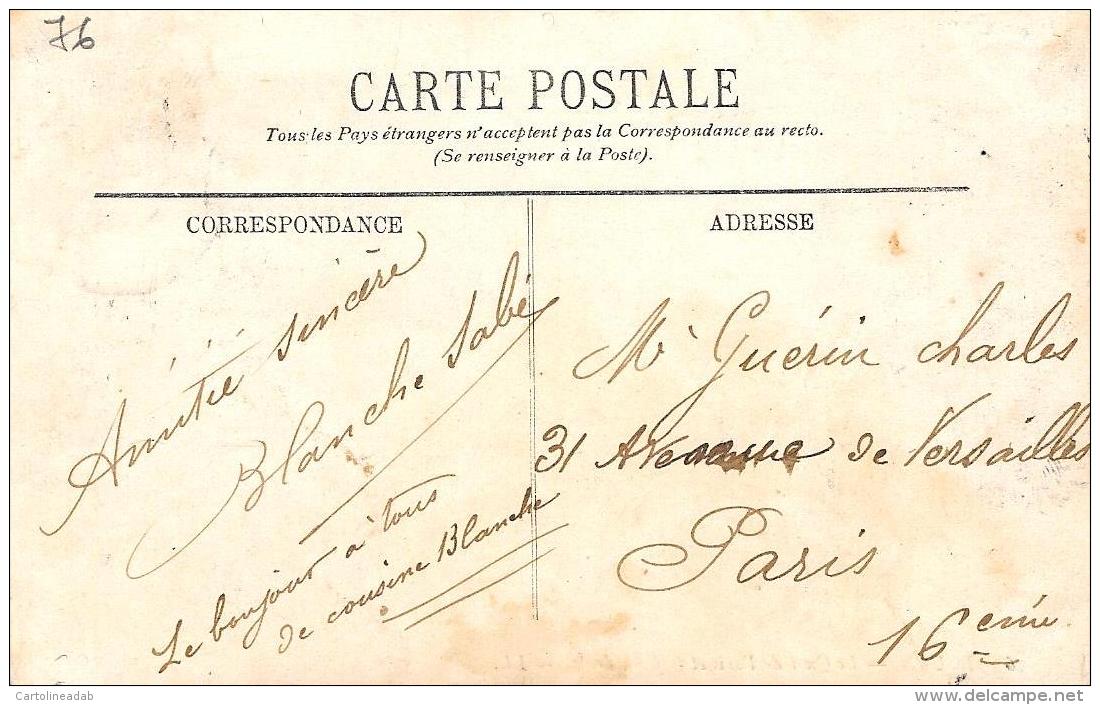 76
CARTE POSTALE
Tous les Pays étrangers n'acceptent pas la Correspondance au recto.
(Se renseigner à la Poste).
CORRESPONDANCE
Amitié sincère
Blanche Sabé
Le bonjour à tous
de cousine Blanche
ADRESSE
Mr Guérin Charles
31 Avenue de Versailles
Paris
16ème
Cartolineadab
delcampe.net